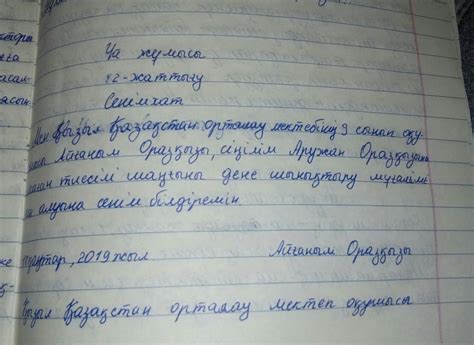 Үй жұмысы
82-жаттығу
Сенімхат
Мен, Қызыл Қазақстан орталау мектебінің 9 сынып оқу
Айғаным Оразқызы, сіңілім Аружан Оразқызына
тиесілі шаңғыны дене шынықтыру мұғалімі
алуына сенім білдіремін.
қаңтар, 2019 жыл. Айғаным Оразқызы
Қызыл Қазақстан орталау мектеп оқушысы